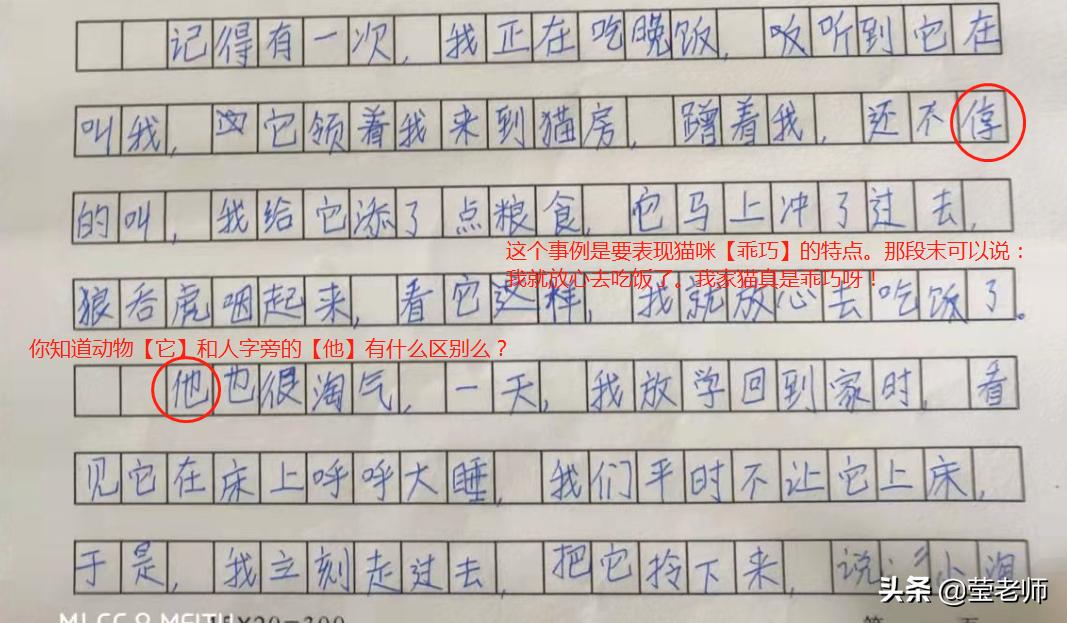 记得有一次,我正在吃晚饭,听到它在
叫我,它领着我来到猫房,蹭着我,还不停
的叫,我给它添了点粮食,它马上冲了过去,
这个事例是要表现猫咪【乖巧】的特点。那段末可以说：
我就放心去吃饭了。我家猫真是乖巧呀！
狼吞虎咽起来,看它这样,我就放心去吃饭了。
你知道动物【它】和人字旁的【他】有什么区别么？
他也很淘气,一天,我放学回到家时,看
见它在床上呼呼大睡,我们平时不让它上床,
于是,我立刻走过去,把它拎下来,说:小淘
头条 @莹老师
15X20=300